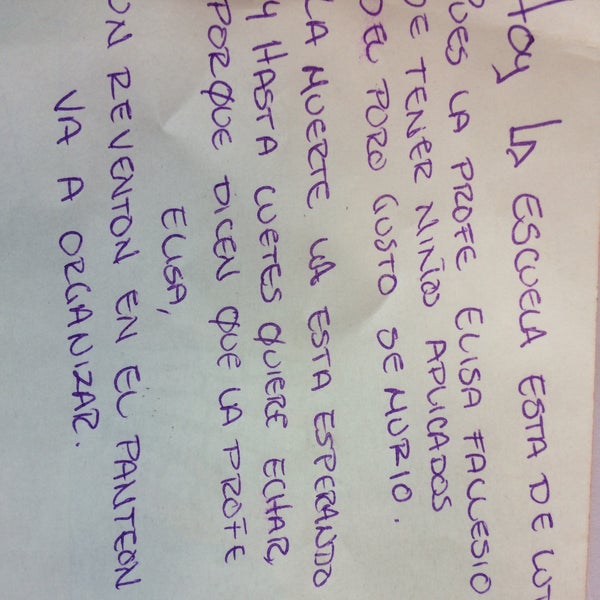 HOY LA ESCUELA ESTA DE LUT
PUES LA PROFE ELISA FALLESIO
DE TENER NIÑOS APLICADOS
DEL PORO GUSTO SE MURIO.
LA MUERTE LA ESTA ESPERANDO
Y HASTA CUETES QUIERE ECHAR,
PORQUE DICEN QUE LA PROFE
ELISA,
UN REVENTON EN EL PANTEON
VA A ORGANIZAR.